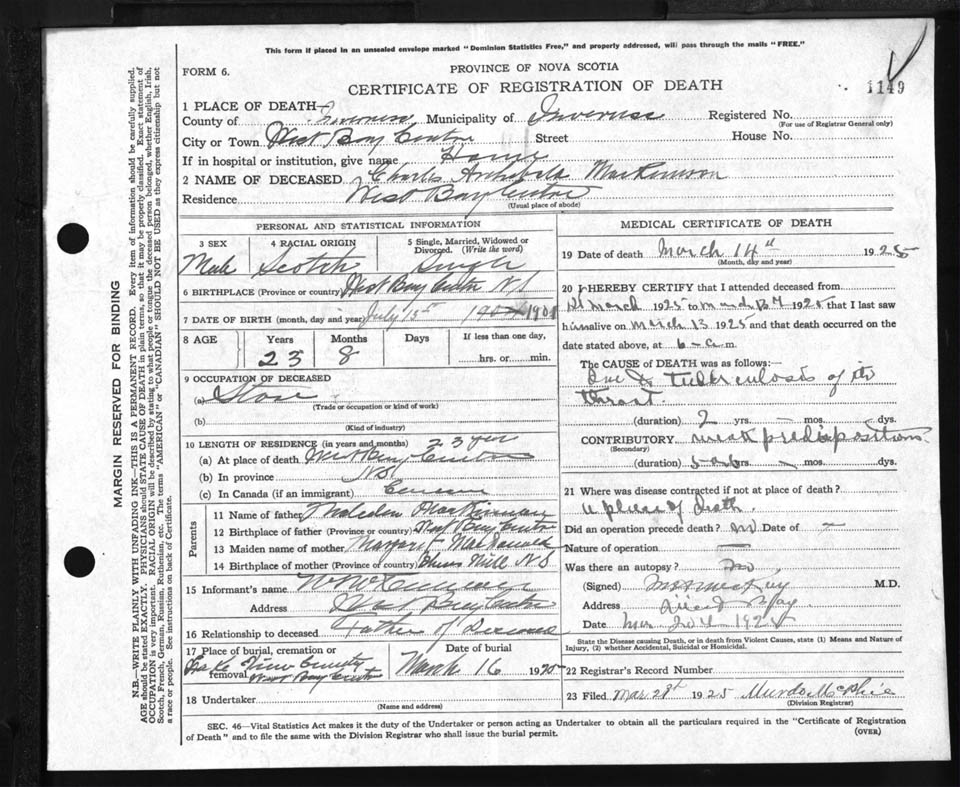 This form if placed in an unsealed envelope marked "Dominion Statistics Free," and properly addressed, will pass through the mails "FREE."
FORM 6.
PROVINCE OF NOVA SCOTIA
CERTIFICATE OF REGISTRATION OF DEATH
1149
1 PLACE OF DEATH—
County of Municipality of Inverness Registered No.
(For use of Registrar General only)
City or Town West Bay Centre Street House No.
If in hospital or institution, give name Home
2 NAME OF DECEASED Charles Archibald MacKinnon
Residence West Bay Centre
(Usual place of abode)
PERSONAL AND STATISTICAL INFORMATION
3 SEX 4 RACIAL ORIGIN 5 Single, Married, Widowed or Divorced. (Write the word)
Male Scotch Single
6 BIRTHPLACE (Province or country) West Bay Centre N S
7 DATE OF BIRTH (month, day and year) July 15th 1901
8 AGE Years Months Days If less than one day,
23 8 hrs. or min.
9 OCCUPATION OF DECEASED
(a)
(Trade or occupation or kind of work)
(b)
(Kind of industry)
10 LENGTH OF RESIDENCE (in years and months) 23 years
(a) At place of death West Bay Centre
(b) In province N S
(c) In Canada (if an immigrant)
Parents
11 Name of father Malcolm MacKinnon
12 Birthplace of father (Province or country) West Bay Centre
13 Maiden name of mother Margaret MacDonald
14 Birthplace of mother (Province or country) Mills N S
15 Informant's name
Address West Bay Centre
16 Relationship to deceased Father of Deceased
17 Place of burial, cremation or removal Date of burial
West Bay Centre March 16 1925
18 Undertaker
(Name and address)
MEDICAL CERTIFICATE OF DEATH
19 Date of death March 14th 1925
(Month, day and year)
20 I HEREBY CERTIFY that I attended deceased from
March 1925 to 1925 that I last saw
him alive on March 13 1925 and that death occurred on
date stated above, at 6 a m.
The CAUSE OF DEATH was as follows:—
Due to tuberculosis of the
throat
(duration) 2 yrs. — mos. — dys.
CONTRIBUTORY weak predisposition
(Secondary)
(duration) yrs. mos. dys.
21 Where was disease contracted if not at place of death?
at place of death
Did an operation precede death? no Date of —
Nature of operation —
Was there an autopsy? no
(Signed) M.D.
Address
Date Mar 20th 1925
State the Disease causing Death, or in death from Violent Causes, state (1) Means and Nature of Injury, (2) whether Accidental, Suicidal or Homicidal.
22 Registrar's Record Number
23 Filed Mar 28th 1925 Murdo McPhie
(Division Registrar)
SEC. 46—Vital Statistics Act makes it the duty of the Undertaker or person acting as Undertaker to obtain all the particulars required in the "Certificate of Registration
of Death" and to file the same with the Division Registrar who shall issue the burial permit.
(OVER)
MARGIN RESERVED FOR BINDING
N.B.—WRITE PLAINLY WITH UNFADING INK—THIS IS A PERMANENT RECORD. Every item of information should be carefully supplied.
AGE should be stated EXACTLY. PHYSICIANS should STATE CAUSE OF DEATH in plain terms, so that it may be properly classified. Exact statement of
OCCUPATION is very important. RACIAL ORIGIN will be described by stating to what people or tongue the deceased person belonged, whether English, Irish,
Scotch, French, German, Russian, Ruthenian, etc. The terms "AMERICAN" or "CANADIAN" SHOULD NOT BE USED as they express citizenship but not
a race or people. See instructions on back of Certificate.